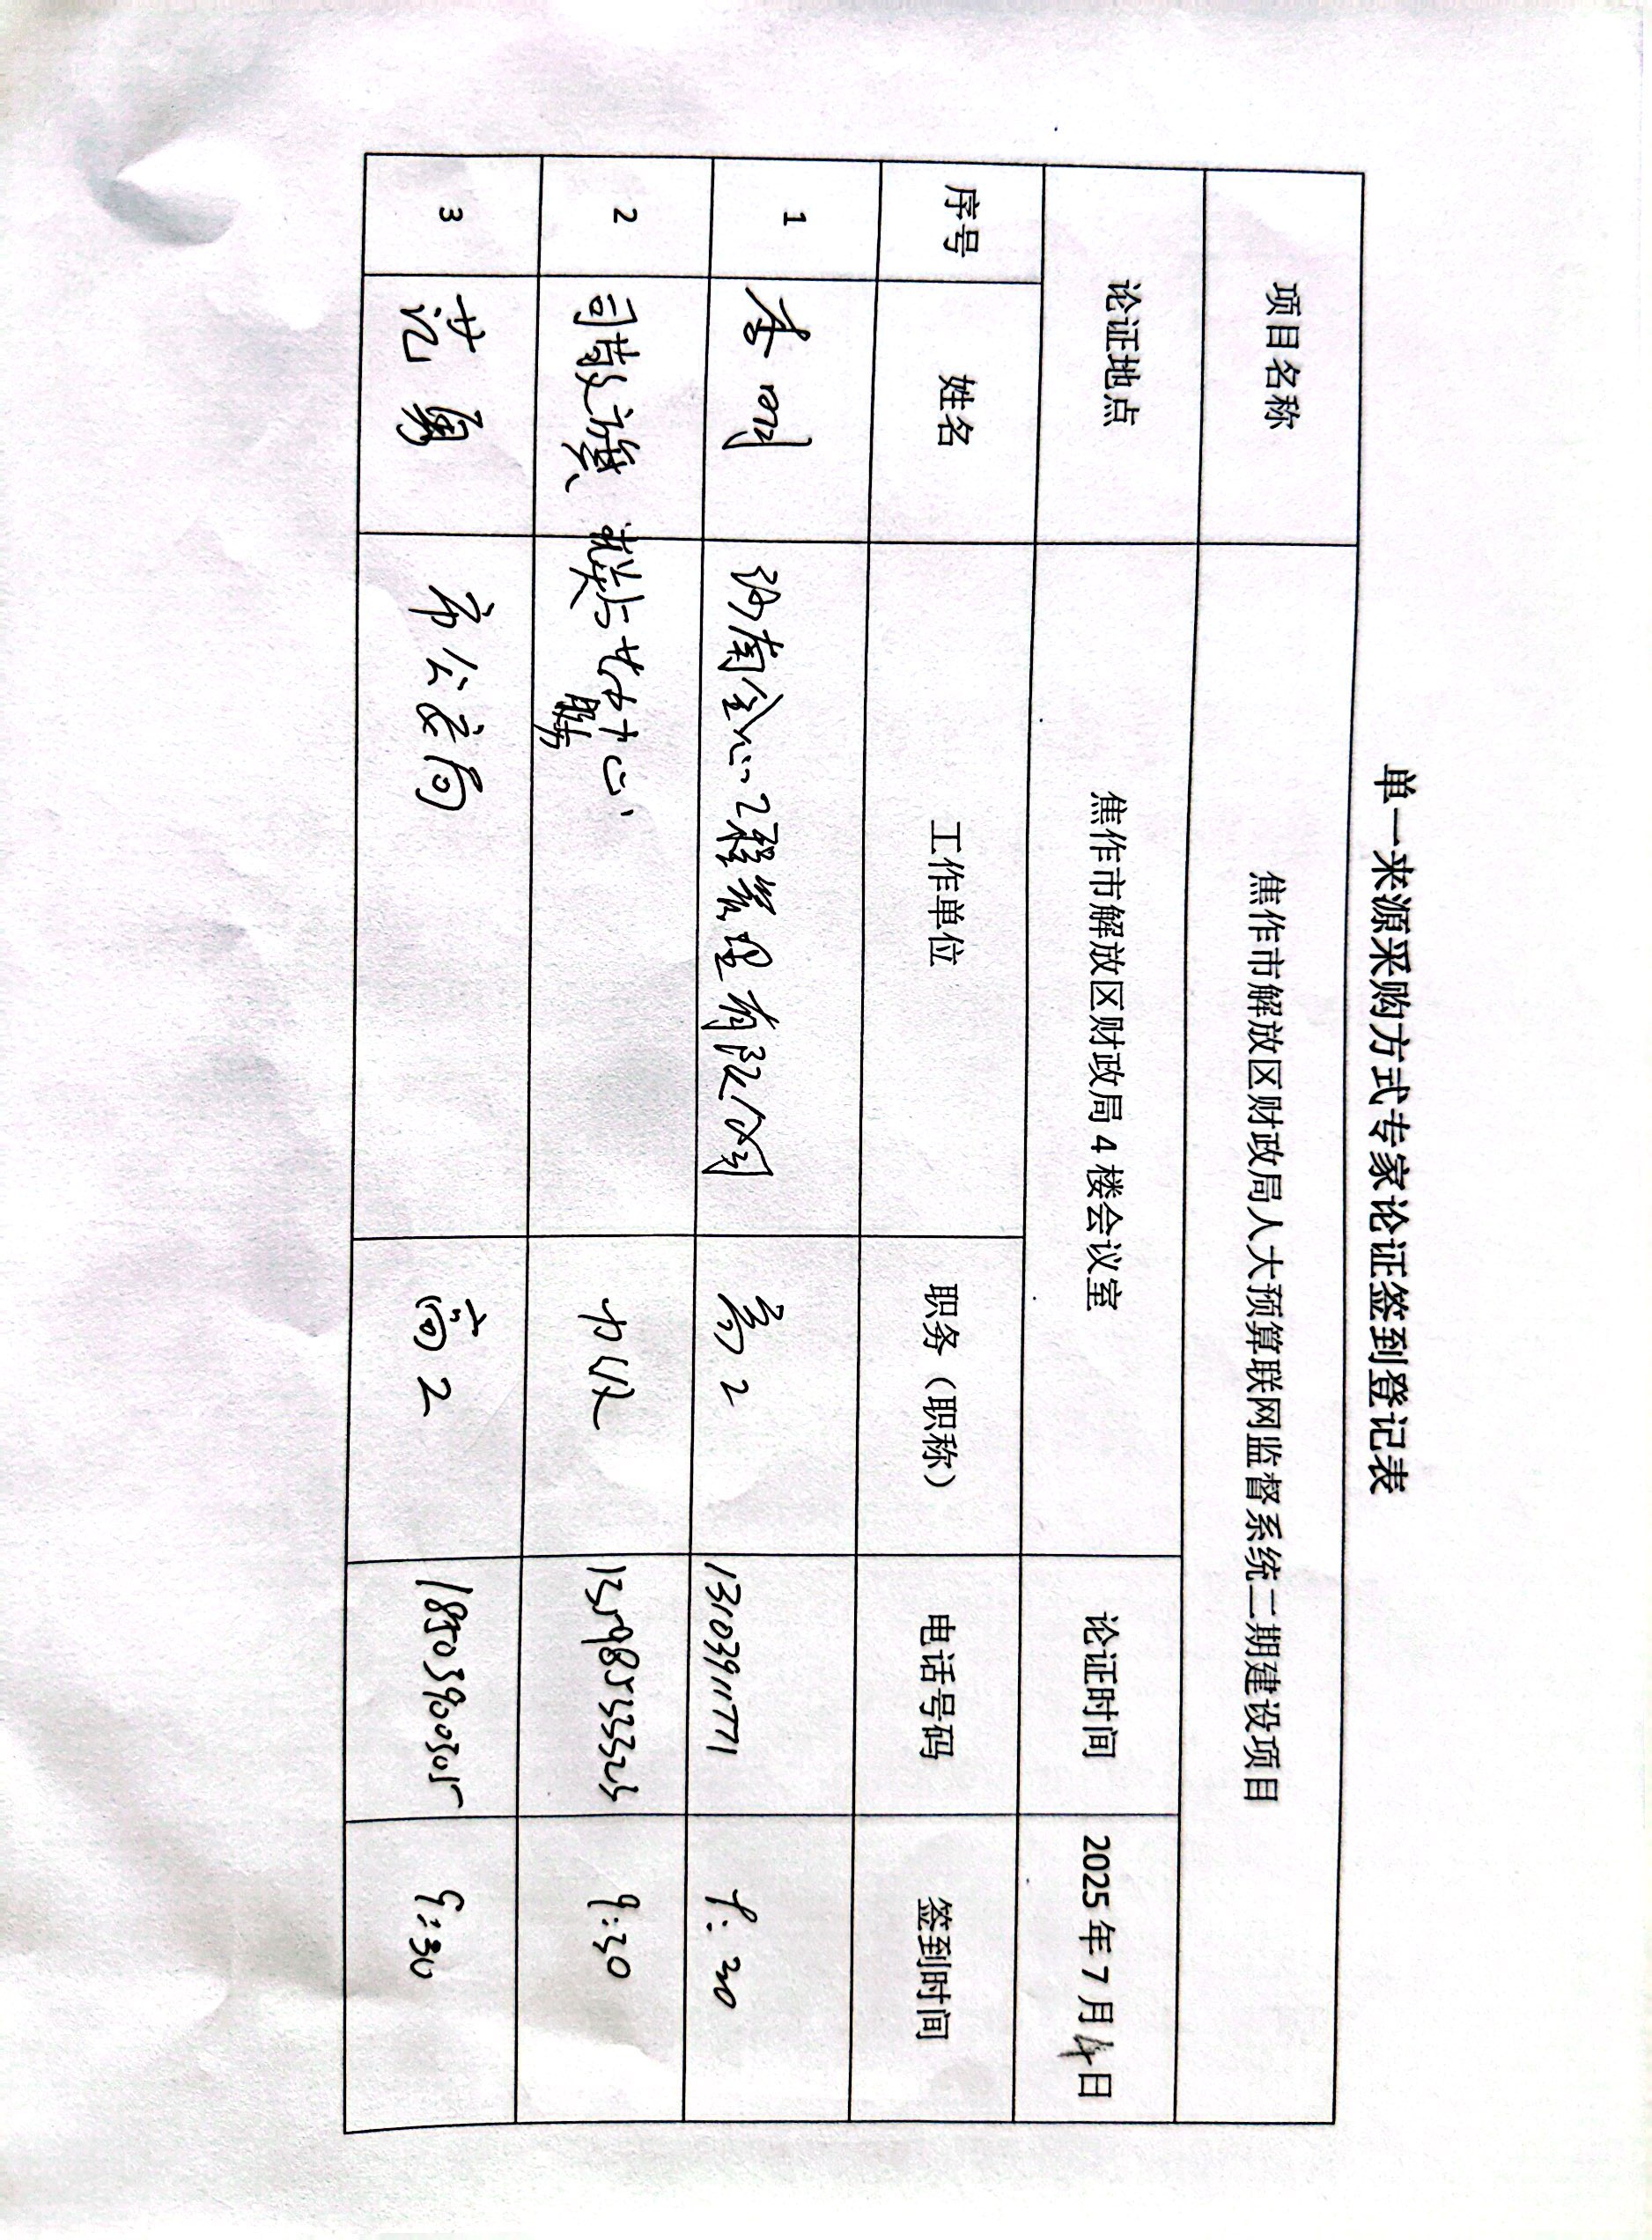 单一来源采购方式专家论证签到登记表
项目名称 焦作市解放区财政局人大预算联网监督系统二期建设项目
论证地点 焦作市解放区财政局 4 楼会议室 论证时间 2025 年 7 月 14 日
序号 姓名 工作单位 职务（职称） 电话号码 签到时间
1 李刚 河南全心工程管理有限公司 高工 13103911771 9:30
2 司敬旗 中心 中级 13598533323 9:30
3 范勇 市公安局 高工 18503900305 9:30